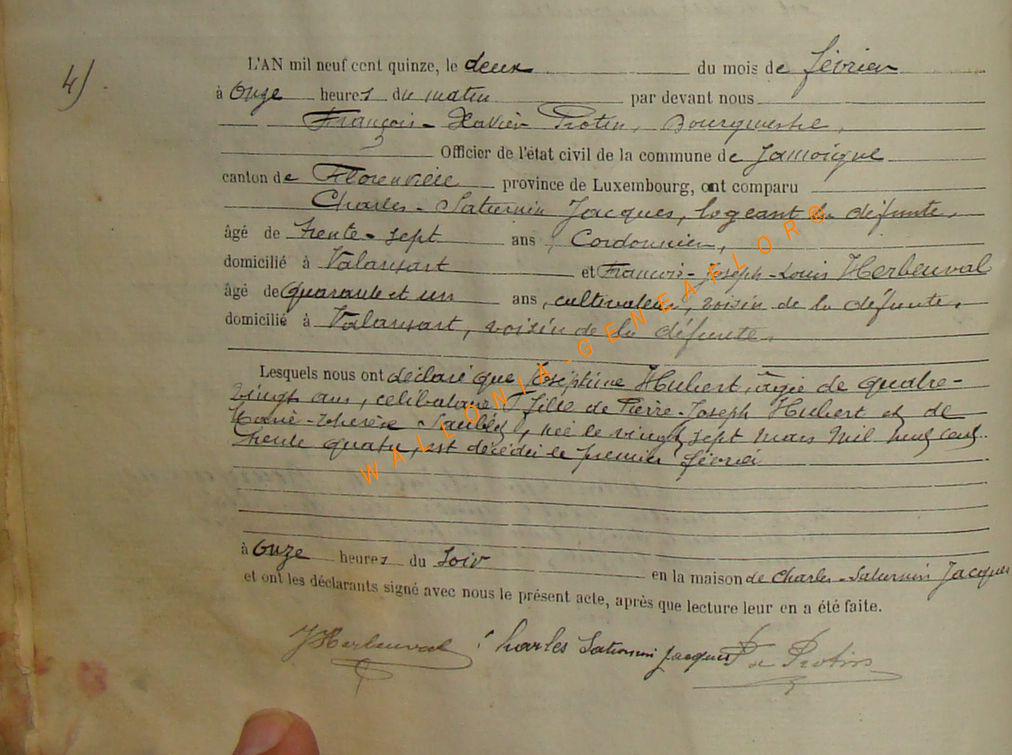 4)
L'AN mil neuf cent quinze, le deux du mois de février
à Onze heures du matin par devant nous
François-Xavier Protin, Bourgmestre,
Officier de l'état civil de la commune de Jamoigne
canton de Florenville province de Luxembourg, ont comparu
Charles-Saturnin Jacques, logeant la défunte,
âgé de trente-sept ans, Cordonnier,
domicilié à Valansart et François-Joseph-Louis Herbeuval
âgé de quarante et un ans, cultivateur, voisin de la défunte,
domicilié à Valansart, voisin de la défunte.
Lesquels nous ont déclaré que Joséphine Hubert, âgée de quatre-
vingt ans, célibataire, fille de Pierre-Joseph Hubert et de
Marie-Thérèse, née le vingt sept mars mil huit cent
trente quatre, est décédée le premier février
à Onze heures du Soir en la maison de Charles-Saturnin Jacques
et ont les déclarants signé avec nous le présent acte, après que lecture leur en a été faite.
JHerbeuval Charles Saturnin Jacques Protin
WALLONIA-GENEAFLORE